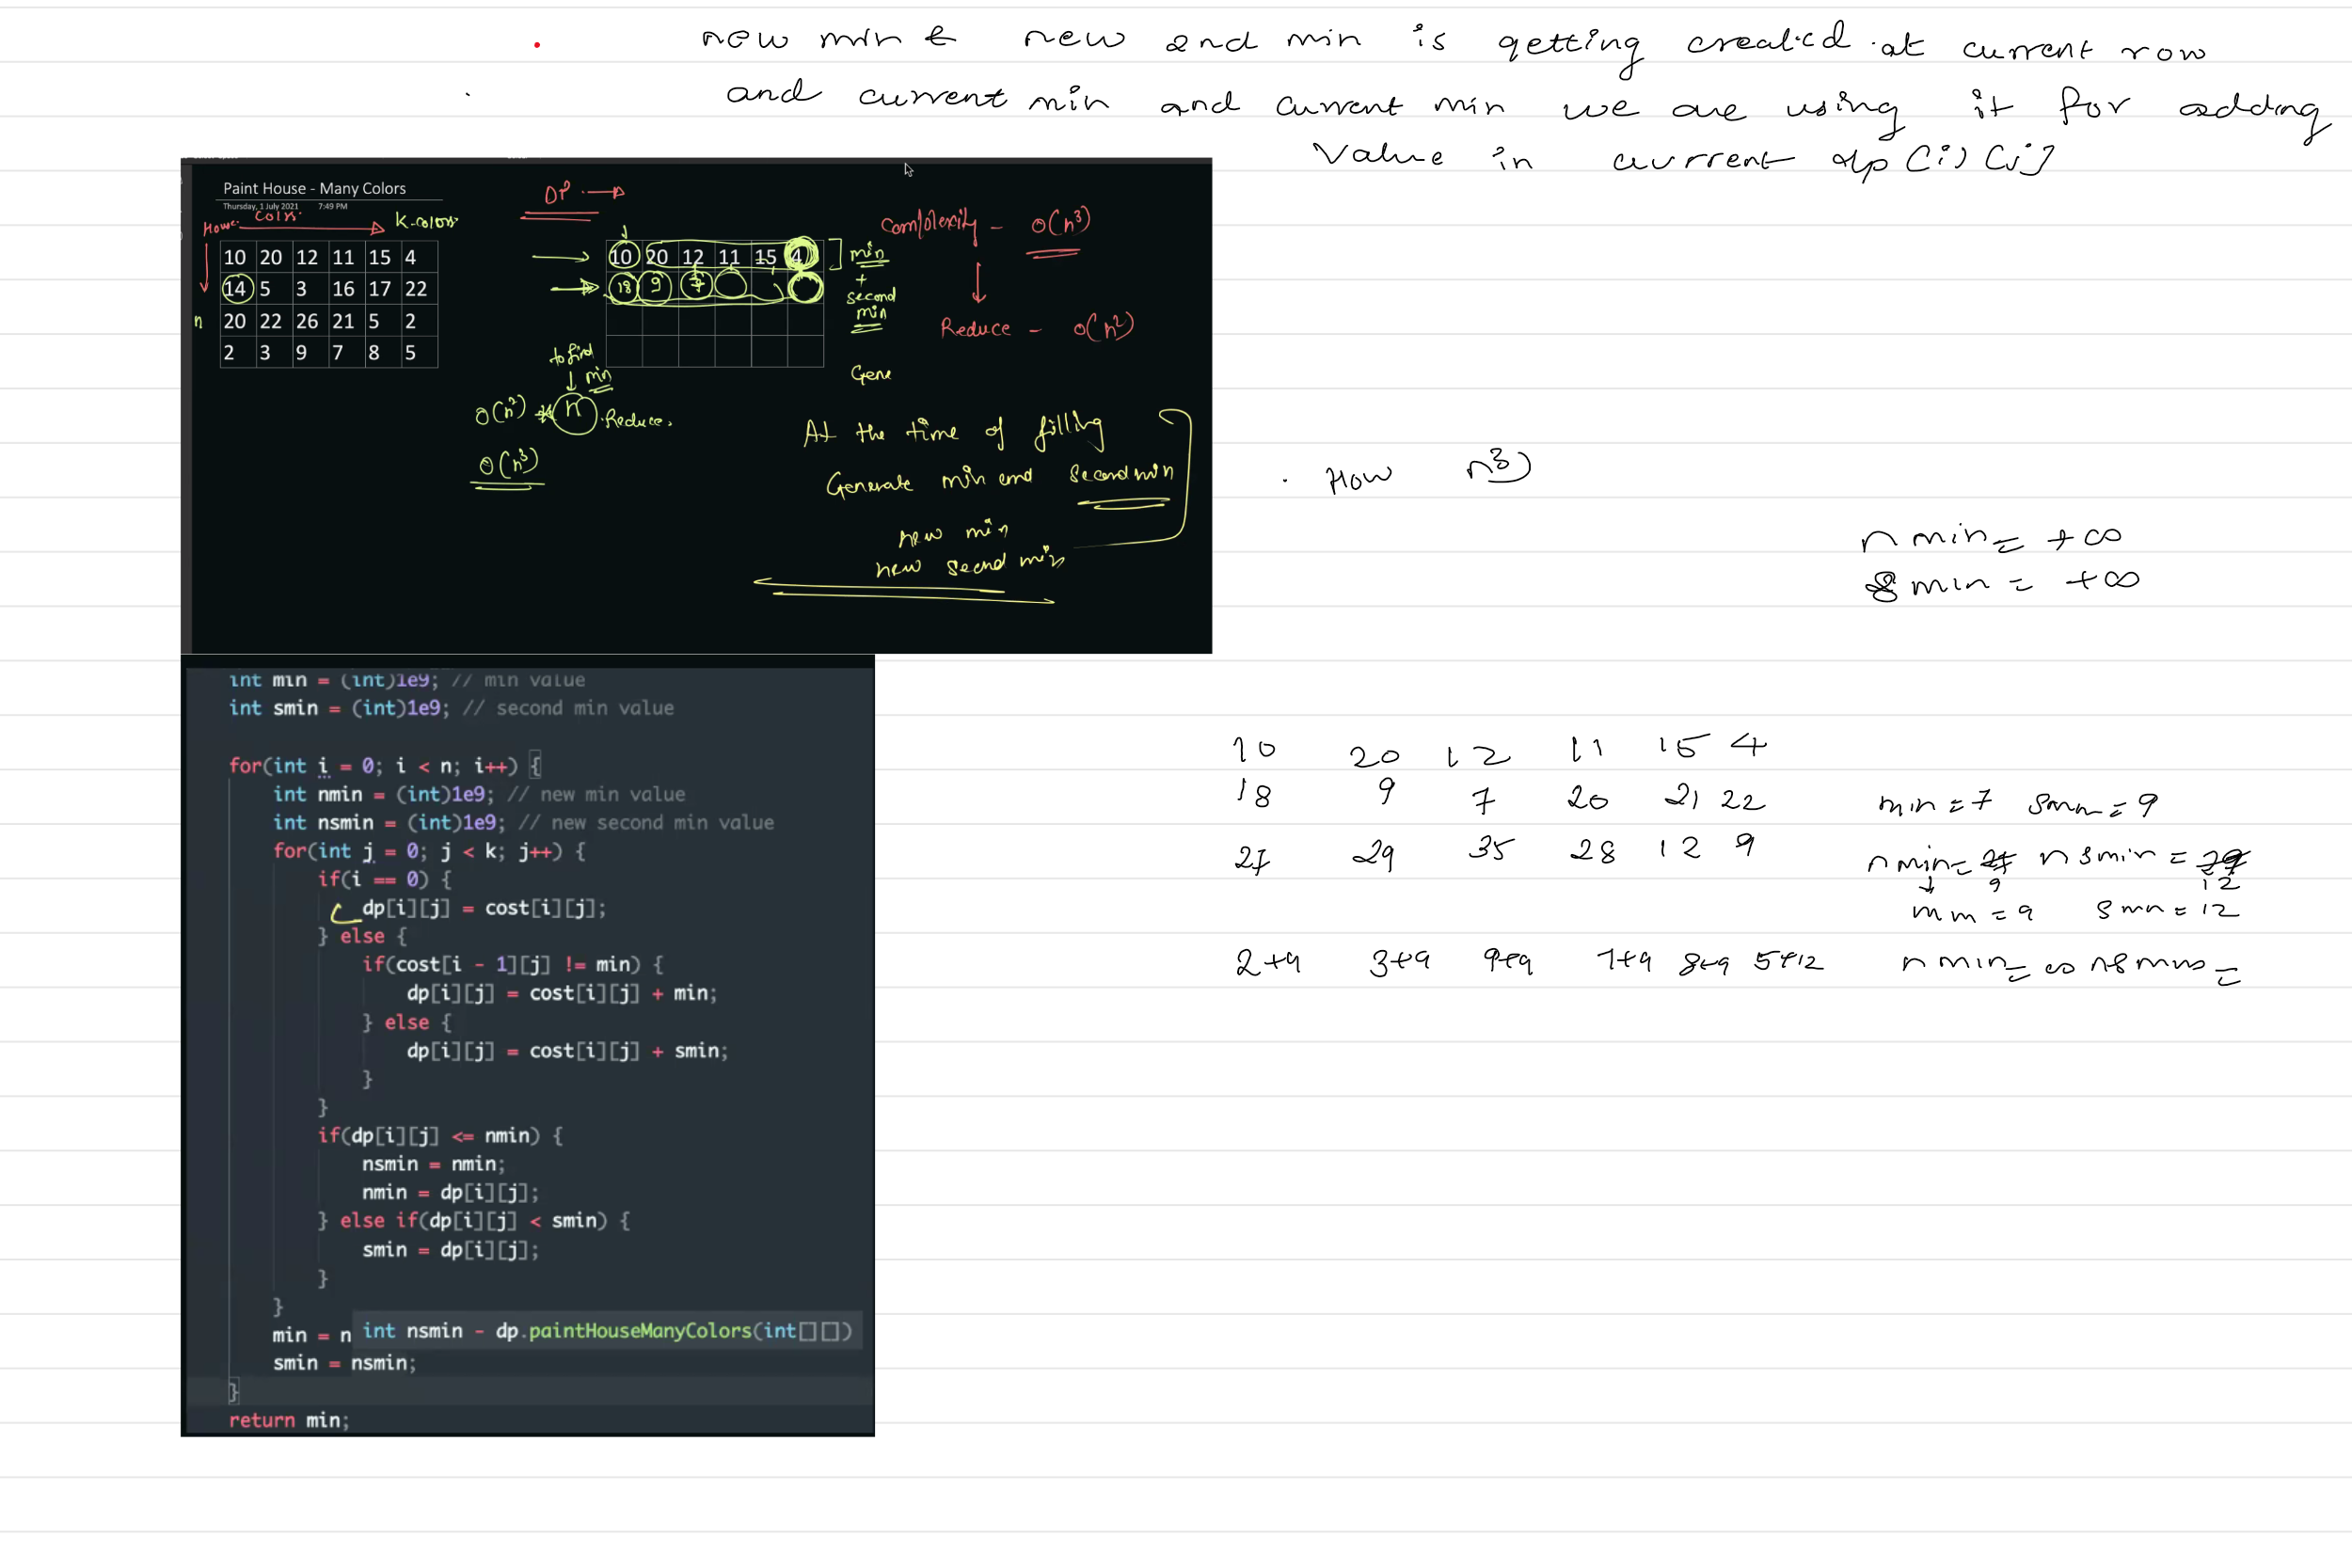 new min & new 2nd min is getting created at current row
and current min and current min we are using it for adding
value in current dp[i][j]
Paint House - Many Colors
Thursday, 1 July 2021 7:49 PM
House Colors K-colors
n
10 20 12 11 15 4
14 5 3 16 17 22
20 22 26 21 5 2
2 3 9 7 8 5
DP
10 20 12 11 15 4
18 9 7
min
+
second
min
Complexity - O(n³)
Reduce - O(n²)
to find
min
O(n²) * n Reduce.
O(n³)
Gene
At the time of filling
Generate min and second min
new min
new second min
How n³)
nmin = +∞
smin = +∞
int min = (int)1e9; // min value
int smin = (int)1e9; // second min value
for(int i = 0; i < n; i++) {
int nmin = (int)1e9; // new min value
int nsmin = (int)1e9; // new second min value
for(int j = 0; j < k; j++) {
if(i == 0) {
dp[i][j] = cost[i][j];
} else {
if(cost[i - 1][j] != min) {
dp[i][j] = cost[i][j] + min;
} else {
dp[i][j] = cost[i][j] + smin;
}
}
if(dp[i][j] <= nmin) {
nsmin = nmin;
nmin = dp[i][j];
} else if(dp[i][j] < smin) {
smin = dp[i][j];
}
}
min = n int nsmin - dp.paintHouseManyColors(int[][])
smin = nsmin;
}
return min;
10 20 12 11 15 4
18 9 7 20 21 22 min = 7 smin = 9
27 29 35 28 12 9 nmin = 27 nsmin = 29
9 12
min = 9 smin = 12
2+9 3+9 9+9 7+9 8+9 5+12 nmin = ∞ nsmin =